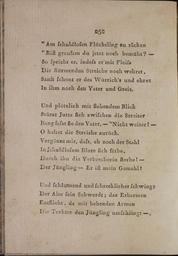 252
"Am schuldlosen Flüchtling zu rächen
"Bist grausam du jetzt noch bemüht? —
So spricht er, indess er mit Fleiss
Die stürmenden Streiche noch wehret,
Sanft schont er des Wüterich's und ehret
In ihm noch den Vater und Greis.
Und plötzlich mit flehendem Blick
Stürzt Jutta sich zwischen die Streiter
Hang fasst So den Vater. — "Nicht weiter! —
O haltet die Streiche zurück.
Vergönnt mir, dass, eh noch der Stahl
In schuldlosem Blute sich färbe,
Durch ihn die Verbrecherin sterbe! —
Der Jüngling — Er ist mein Gemahl!
Und schäumend und schrecklicher schwingt
Der Alte sein Schwerdt; das Erbarmen
Entflieht, da mit bebenden Armen
Die Tochter den Jüngling umschlingt —